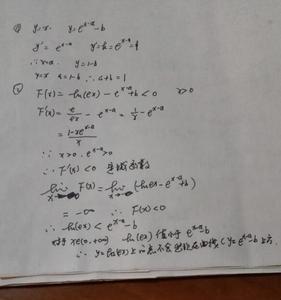 ① y=x. y=e^{x-a}-b
y'=e^{x-a} y'=k=e^{x-a}=1
∴x=a. y=1-b
y=x a=1-b ∴a+b=1
② F(x)=ln(ex)-e^{x-a}+b<0 x>0
F'(x)=\frac{e}{ex}-e^{x-a}=\frac{1}{x}-e^{x-a}
=\frac{1-xe^{x-a}}{x}
∵x>0. e^{x-a}>0
∴F'(x)<0 是减函数
lim F(x)=lim(ln ex-e^{x-a}+b)
=-∞ ∴F(x)<0
∴ln(ex)<e^{x-a}-b
对于x∈(0,+∞) ln(ex)值小于e^{x-a}-b
∴y=ln(ex)上的点不会出现在曲线y=e^{x-a}-b上方